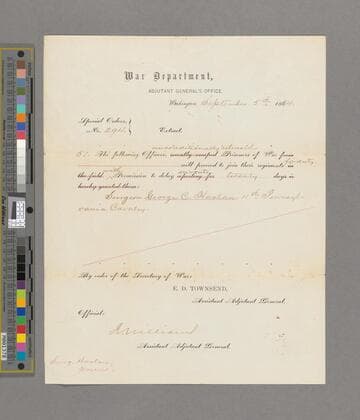 War Department,
ADJUTANT GENERAL'S OFFICE,
Washington September 5th 1864.
Special Orders,
No. 294.
Extract.
unconditionally released
5. The following Officer, recently escaped Prisoners of War from
will proceed to join their regiments in
the field with Permission to delay reporting for twenty days is
hereby granted them:
Surgeon George C. Harlan 11th Pennsyl-
vania Cavalry.
By order of the Secretary of War:
E. D. TOWNSEND,
Assistant Adjutant General.
Official:
Assistant Adjutant General.
Surg. Harlan,